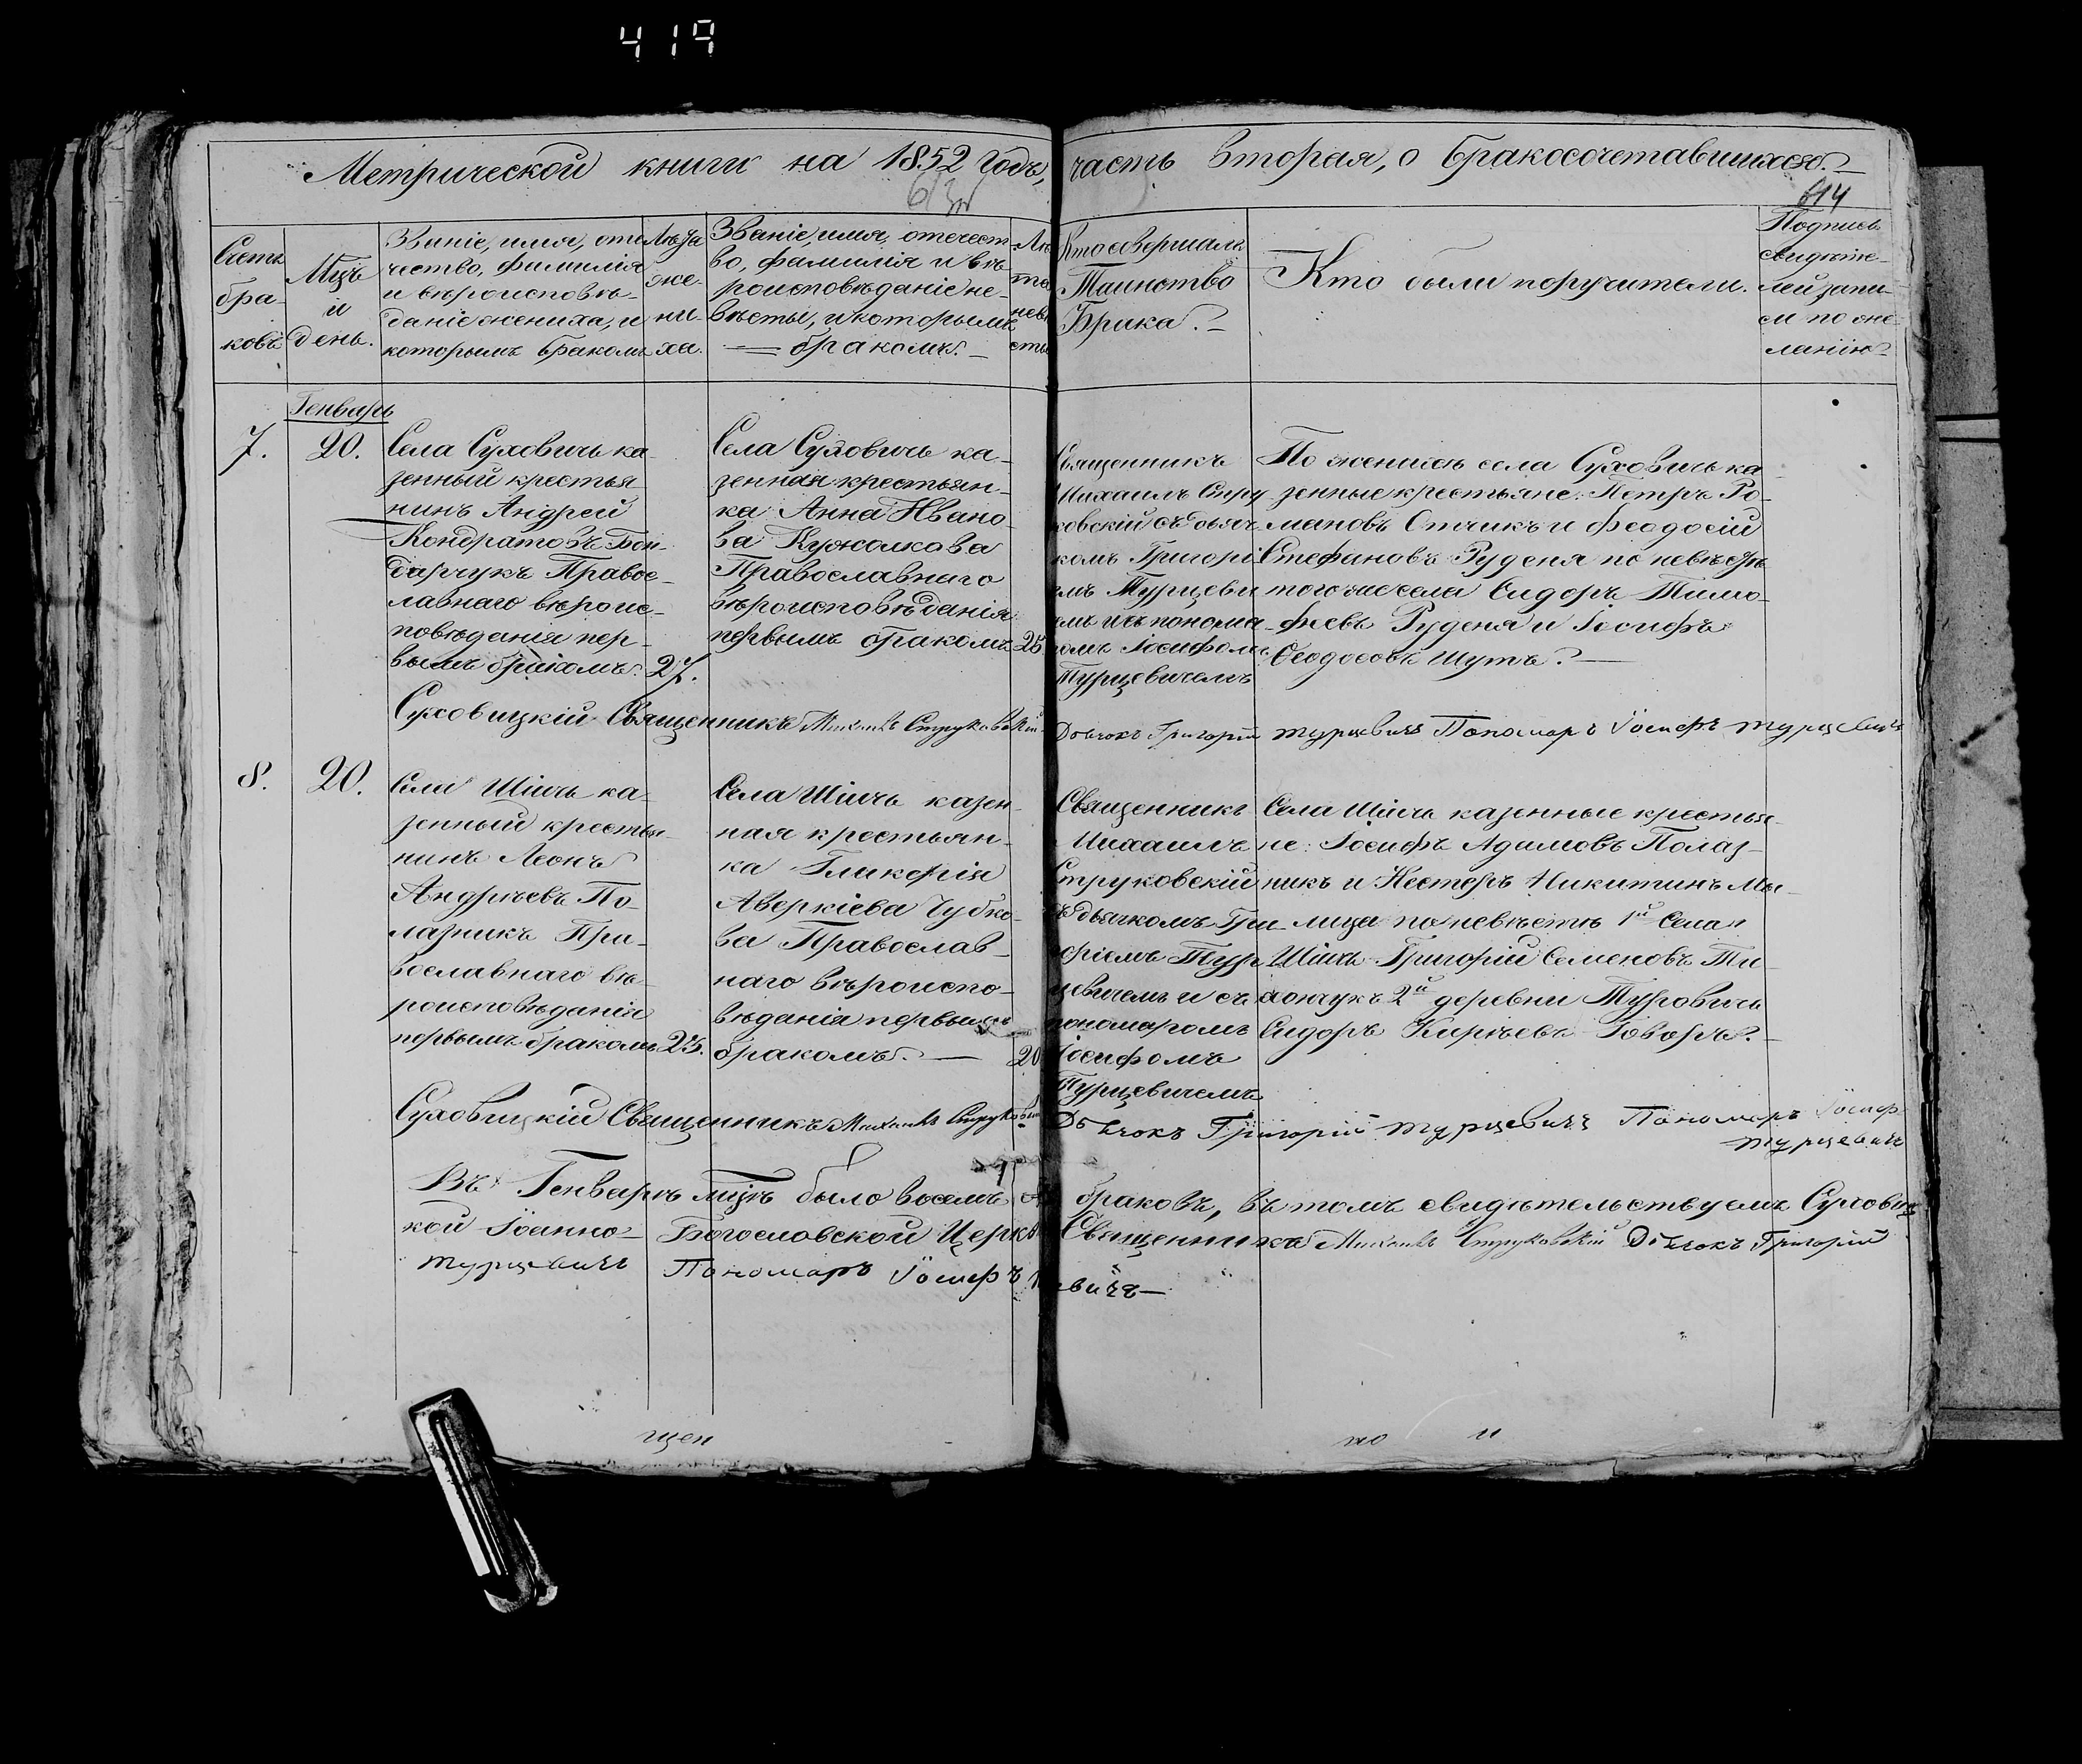 419
Метрической книги на 1852 Годъ, часть вторая, о бракосочетавшихся.
613
614
Счетъ бра- ковъ
Мцъ и день.
Званіе, имя, оте-
чество, фамилія
и вѣроисповѣ-
даніе жениха, и
которымъ бракомъ
Лѣта
же-
ни-
ха.
Званіе, имя, отечест-
во, фамилія и вѣ-
роисповѣданіе не-
вѣсты, и которымъ
бракомъ.
Лѣ
та
невѣ
сты
Кто совершалъ
Таинство
Брака.
Кто были поручители.
Подпись
свидѣте-
лей запи-
си по же-
ланію
Генварь
7.
20.
Села Суховичь ка-
зенный крестья-
нинъ Андрей
Кондратовъ Бон-
дарчукъ Правос-
лавнаго вѣроис-
повѣданія пер-
вымъ бракомъ.
27.
Села Суховичь ка-
зенная крестьян-
ка Анна Ивано-
ва
Православнаго
вѣроисповѣданія
первымъ бракомъ
25
Священникъ
Михаилъ Стру
ковскій съ дьяч
комъ Григорі
емъ Турцеви
емъ и съ понома
ромъ Іосифомъ
Турцевичемъ
По женихѣ села Суховичь ка-
зенные крестьяне: Петръ Ро-
мановъ и Феодосій
Стефановъ Руденя по невѣстѣ
того же села Сидоръ Тимо-
феевъ Руденя и Іосифъ
Феодосовъ Шутъ.
Суховицкій Священникъ Михаилъ Струковскій Дьячокъ Григорій Турцевичъ Пономаръ Іосифъ Турцевичъ
8.
20.
Села Шіичь ка-
зенный крестья-
нинъ Леонъ
Андрѣевъ По-
лазникъ Пра-
вославнаго вѣ-
роисповѣданія
первымъ бракомъ
25.
Села Шіичь казен-
ная крестьян-
ка Гликерія
Аверкіева Чубко-
ва Православ-
наго вѣроиспо-
вѣданія первымъ
бракомъ.
20
Священникъ
Михаилъ
Струковскій
съ дьячкомъ Гри-
горіемъ Тур
цевичемъ и съ
пономаромъ
Іосифомъ
Турцевичемъ
Села Шіичь казенные крестья-
не: Іосифъ Адамовъ Полаз-
никъ и Нестеръ Никитинъ Мы-
лица по невѣстѣ 1й Села
Шіичь Григорій Семеновъ Ти-
хончукъ 2й деревни Туровичь
Сидоръ Кирѣевъ Говоръ.
Суховицкій Священникъ Михаилъ Струковскій Дьячокъ Григорій Турцевичъ Пономаръ Іосифъ
Турцевичъ
Въ Генварѣ мцѣ было восемь браковъ, въ томъ свидѣтельствуемъ Суховиц
кой Іоанно-Богословской Церкви Священникъ Михаилъ Струковскій Дьячокъ Григорій
Турцевичъ Пономаръ Іосифъ евичъ
щен
но и